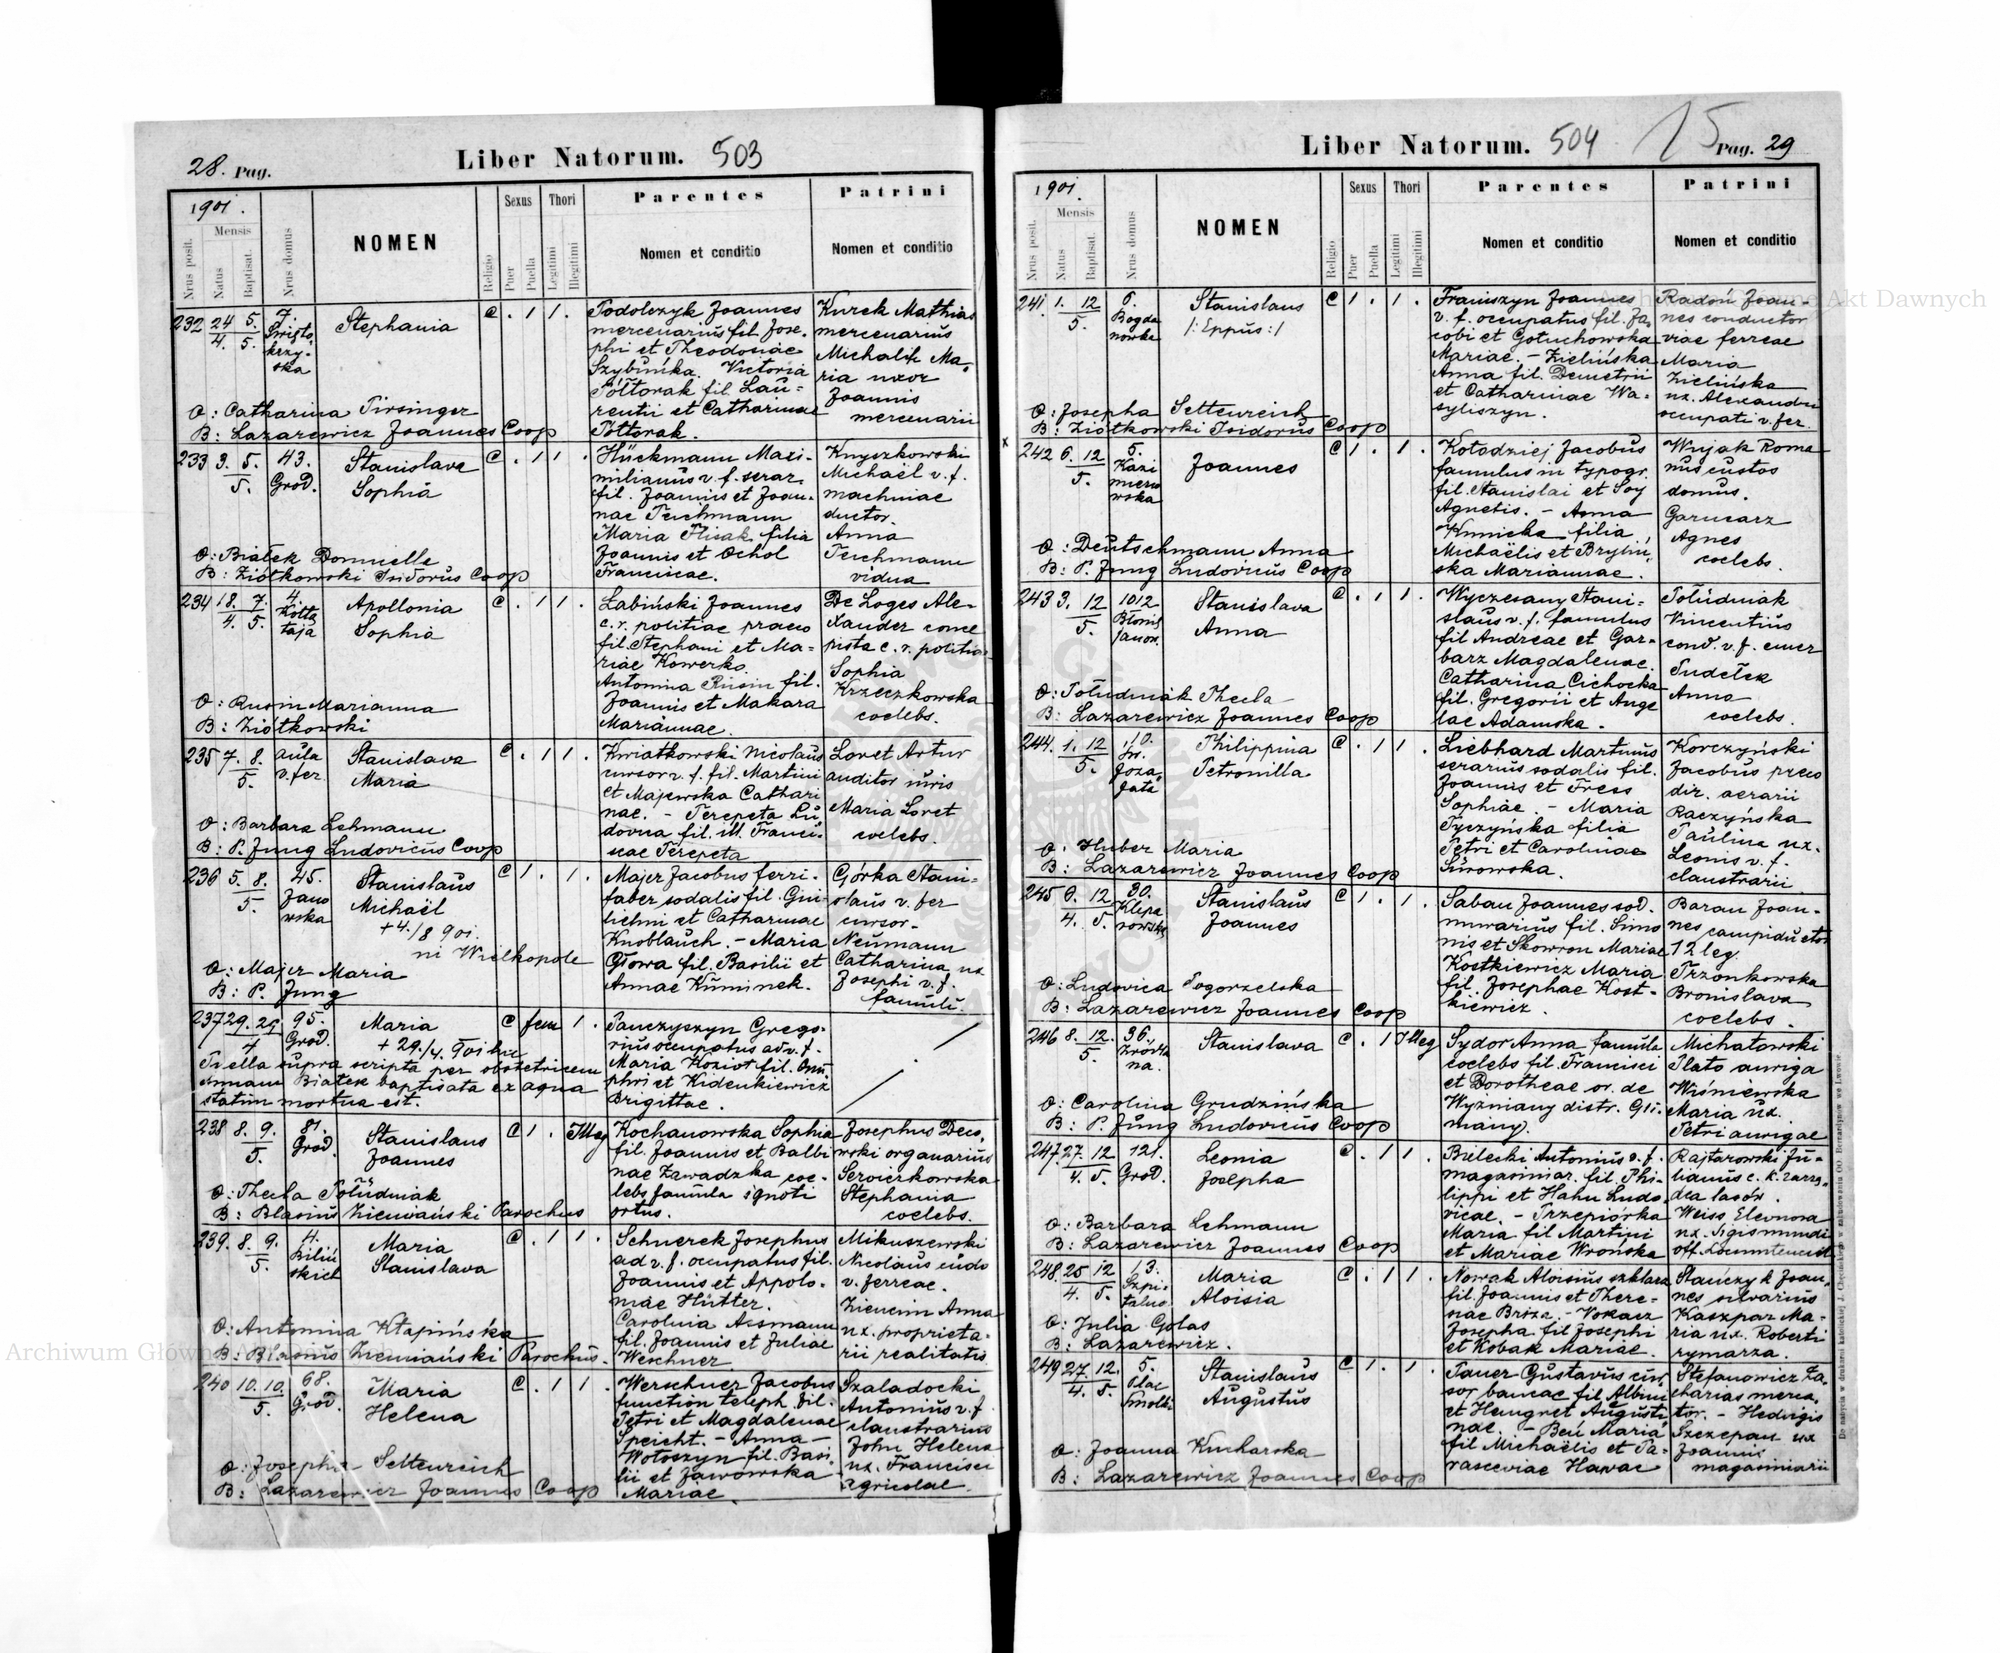 28. Pag.
Liber Natorum. 503
1901.
Nrus posit.
Mensis
Natus
Baptisat.
Nrus domus
NOMEN
Religio
Sexus
Puer
Puella
Thori
Legitimi
Illegitimi
Parentes
Nomen et conditio
Patrini
Nomen et conditio
232 24/4. 5./5. 7. Święto krzyska
Stephania
C . 1 1 .
Podolczyk Joannes
mercenarius fil. Jose-
phi et Theodosiae
Szybińka. Victoria
Półtorak fil. Lau-
rentii et Catharinae
Półtorak.
Kurek Mathias
mercenarius
Ma-
ria uxor
Joannis
mercenarii
O: Catharina Pirsinger
B: Lazarewicz Joannes Coop
233 3. 5./5. 43. Grod.
Stanislava
Sophia
C . 1 1 .
Hückmann Maxi-
milianus v. f. serar.
fil. Joannis et Joan-
nae Teichmann
Maria filia
Joannis et Ochol
Franciscae.
Knyszkowski
Michaël v. f.
machinae
ductor.
Anna
Teichmann
vidua
O: Białek Domicella
B: Ziółkowski Isidorus Coop
234 18./4. 7./5. 4. Kołłątaja
Apollonia
Sophia
C . 1 1 .
Łabiński Joannes
c. r. politiae praeco
fil. Stephani et Ma-
riae Kowerko.
Antonina Rusin fil.
Joannis et Makara
Mariannae.
De Loges Ale-
xander conce
pista c. r. politiae
Sophia
Krzeczkowska
coelebs.
O: Rusin Marianna
B: Ziółkowski
235 7. 8./5. aula v. fer.
Stanislava
Maria
C . 1 1 .
Kwiatkowski Nicolaus
cursor v. f. fil. Martini
et Majewska Cathari
nae. - Terepeta Lu
dovica fil. ill. Franci-
scae Terepeta
Loret Artur
auditor iuris
Maria Loret
coelebs.
O: Barbara Lehmann
B: P. Jung Ludovicus Coop
236 5. 8./5. 45. Janowska
Stanislaus
Michaël
+ 4./8 901.
ni Wielkopole
C 1 . 1 .
Majer Jacobus ferri-
faber sodalis fil. Gui-
lielmi et Catharinae
Knoblauch. - Maria
Głowa fil. Basilii et
Annae Kuminek.
Górka Stani-
slaus v. fer
cursor -
Neumann
Catharina ux
Josephi v. f.
famuli.
O: Majer Maria
B: P. Jung
237 29. 29/4 95. Grod.
Maria
+ 29./4. 901 hu
C fem 1 .
Panczyszyn Grego-
rius occupatus ad v. f.
Maria Koziot fil. Onu
phri et Kidenkiewicz
Brigittae.
Puella supra scripta per obstetricem
Annam Białek baptisata ex aqua
statim mortua est.
238 8. 9./5. 81. Grod.
Stanislaus
Joannes
C 1 . Illeg
Kochanowska Sophia
fil. Joannis et Balbi
nae Zawadzka coe-
lebs famula ignoti
ortus.
Josephus Deco.
wski organarius
Serwiczkowska
Stephania
coelebs.
O: Thecla Południak
B: Blasius Ziemiański Parochus
239. 8. 9./5. 4. Bilińskich
Maria
Stanislava
C . 1 1 .
Schnerck Josephus
ad v. f. occupatus fil.
Joannis et Appolo-
niae Hütter.
Carolina Assmann
fil. Joannis et Juliae
Weschner
Mikuszewski
Nicolaus
v. ferreae.
Anna
ux. proprieta-
rii realitatis
O: Antonina Kłapińska
B: Blasius Ziemiański Parochus.
240 10. 10./5. 68. Grod.
Maria
Helena
C . 1 1 .
Werschner Jacobus
function teleph. fil.
Petri et Magdalenae
Speicht. - Anna -
Wołoszyn fil. Basi
lii et Jaworska
Mariae.
Szaladocki
Antonius v. f
claustrarius
John Helena
ux. Francisci
agricolae.
O: Josepha Settenreich
B: Lazarewicz Joannes Coop
Liber Natorum. 504 15 Pag. 29
1901.
Nrus posit.
Mensis
Natus
Baptisat.
Nrus domus
NOMEN
Religio
Sexus
Puer
Puella
Thori
Legitimi
Illegitimi
Parentes
Nomen et conditio
Patrini
Nomen et conditio
241. 1. 12/5. 6. Bogdanowka
Stanislaus
/: Eppus :/
C 1 . 1 .
Franiszyn Joannes
v. f. occupatus fil. Ja
cobi et Gołuchowska
Mariae. - Zielińska
Anna fil. Demetrii
et Catharinae Wa-
syliszyn.
Radoń Joan-
nes conductor
viae ferreae
Maria
Zielińska
ux. Alexandri
occupati v. fer.
O: Josepha Settenreich
B: Ziółkowski Isidorus Coop
242 6. 12/5. 5. Kazimierowska
Joannes
C 1 . 1 .
Kołodziej Jacobus
famulus in typogr.
fil. Stanislai et Soy
Agnetis. - Anna
Kunicka filia
Michaëlis et Bryliń
ska Mariannae.
Wujak Roma
nus custos
domus.
Garncarz
Agnes
coelebs.
O: Deutschmann Anna
B: P. Jung Ludovicus Coop
243 3. 12/5. 1012 Błonie Janow.
Stanislava
Anna
C . 1 1 .
Wyczesany Stani-
slaus v. f. famulus
fil Andreae et Gar-
barz Magdalenae.
Catharina Cichocka
fil. Gregorii et Ange
lae Adamska.
Południak
Vincentius
cond. v. f. emer
Pudełek
Anna
coelebs.
O: Południak Thecla
B: Lazarewicz Joannes Coop
244. 1. 12/5. 10. Św. Jozafata
Philippina
Petronilla
C . 1 1 .
Liebhard Martinus
serarius sodalis fil.
Joannis et Fress
Sophiae. - Maria
Tyczyńska filia
Petri et Carolinae
Surowska.
Korczyński
Jacobus praeco
dir. aerarii
Raczyńska
Paulina ux.
Leonis v. f.
claustrarii.
O: Huber Maria
B: Lazarewicz Joannes Coop
245 9./4. 12/5. 30. Kleparowska
Stanislaus
Joannes
C 1 . 1 .
Saban Joannes sod.
murarius fil. Simo
nis et Skowron Mariae
Kostkiewicz Maria
fil. Josephae Kost-
kiewicz.
Baran Joan-
nes campiductor
12 leg.
Trzonkowska
Bronislava
coelebs.
O: Ludovica Pogorzelska
B: Lazarewicz Joannes Coop
246 8. 12./5 36. Źródlana.
Stanislava
C . 1 Illeg
Sydor Anna famula
coelebs fil. Francisci
et Dorotheae or. de
Wyżniany distr. Gli-
niany.
Michałowski
Plato auriga
Wiśniewska
Maria ux.
Petri aurigae
O: Carolina Grudzińska
B: P. Jung Ludovicus Coop
247. 27./4. 12/5. 121. Grod.
Leonia
Josepha
C . 1 1 .
Bielecki Antonius v. f.
magasiniar. fil. Phi-
lippi et Hahn Ludo
vicae. - Trzepiórka
Maria fil Martini
et Mariae Wronska
Rajtarowski Ju-
lianus c. k. zarzą-
dca lasów.
Weiss Eleonora
ux. Sigismundi
off. Locumtenent
O: Barbara Lehmann
B: Lazarewicz Joannes Coop
248. 25/4. 12/5. 13. Szpitalna.
Maria
Aloisia
C . 1 1 .
Nowak Aloisius szklarz
fil. Joannis et There-
siae Briza. - Vokacz
Josepha fil Josephi
et Kobak Mariae.
Stańczyk Joan-
nes silvarius
Kaszpar Ma-
ria ux. Roberti
rymarza.
O: Julia Gołas
B: Lazarewicz.
249 27./4. 12./5. 5. Plac Smolki
Stanislaus
Augustus
C 1 . 1 .
Pauer Gustavus cur-
sor bancae fil Albini
et Hengret Augusti
nae. - Beu Maria
fil Michaëlis et Pa-
rasceviae Hawac
Stefanowicz Za-
charias merca-
tor. - Hedvigis
Szczepan ux
Joannis
magasiniarii
O: Joanna Kucharska
B: Lazarewicz Joannes Coop
Archiwum Główne Akt Dawnych
Archiwum Główne Akt Dawnych